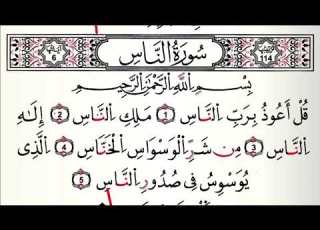 سُورَةُ النَّاسِ
6
114
بِسْمِ اللَّهِ الرَّحْمَٰنِ الرَّحِيمِ
قُلْ أَعُوذُ بِرَبِّ النَّاسِ 1 مَلِكِ النَّاسِ 2 إِلَٰهِ
النَّاسِ 3 مِن شَرِّ الْوَسْوَاسِ الْخَنَّاسِ 4 الَّذِي
يُوَسْوِسُ فِي صُدُورِ النَّاسِ 5